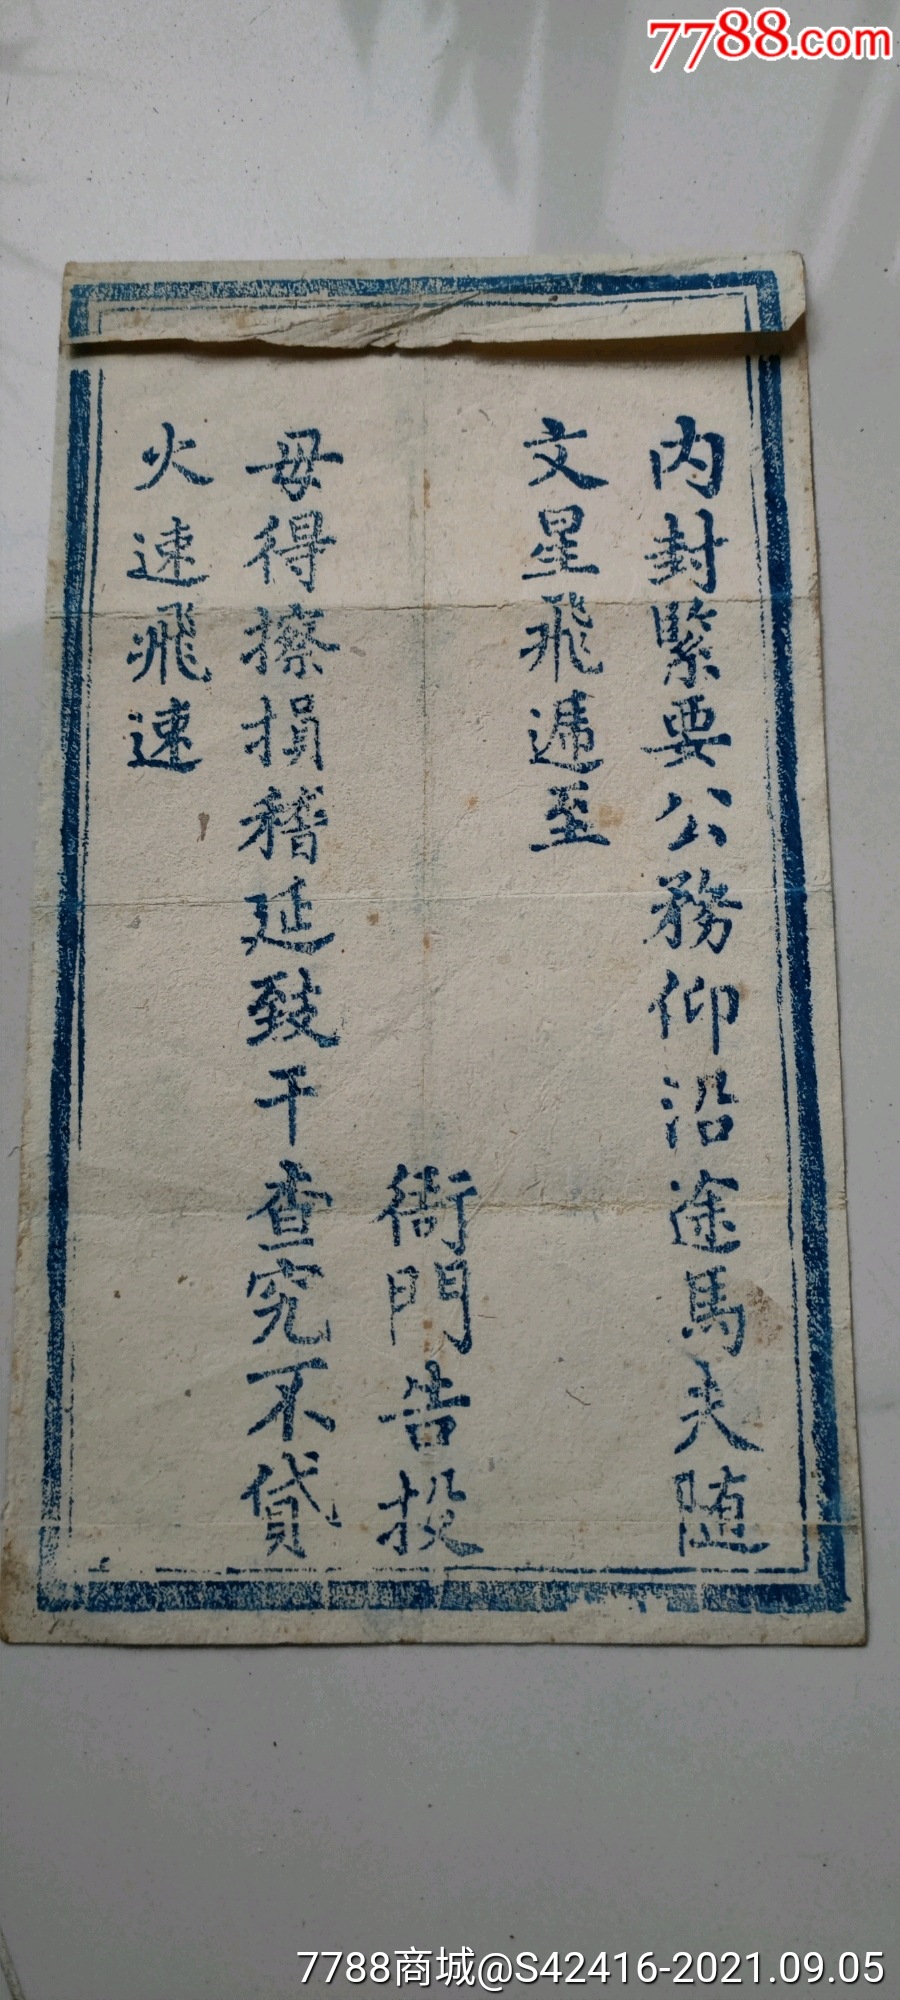 7788.com
内封緊要公務仰沿途馬夫随
文星飛遞至
衙門告投
毋得擦損稽延致干查究不貸
火速飛速
7788商城@S42416-2021.09.05